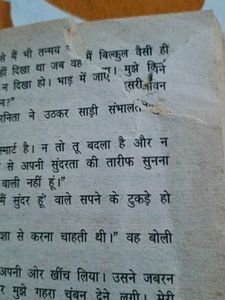 से मैं भी तन्मय
मैं बिल्कुल वैसी ही
हीं दिखा था जब वह
। मुझे किन
न दिखा हो। भाड़ में जाए
न?"
रनिता ने उठकर साड़ी संभालते
स्मार्ट है। न तो तू बदला है और न
से अपनी सुंदरता की तारीफ सुनना
वाली नहीं हूं।"
मैं सुंदर हूं' वाले सपने के टुकड़े हो
शा से करना चाहती थी।" वह बोली
अपनी ओर खींच लिया। उसने जबरन
मुझे गहरा चुंबन देने लगी। मेरी